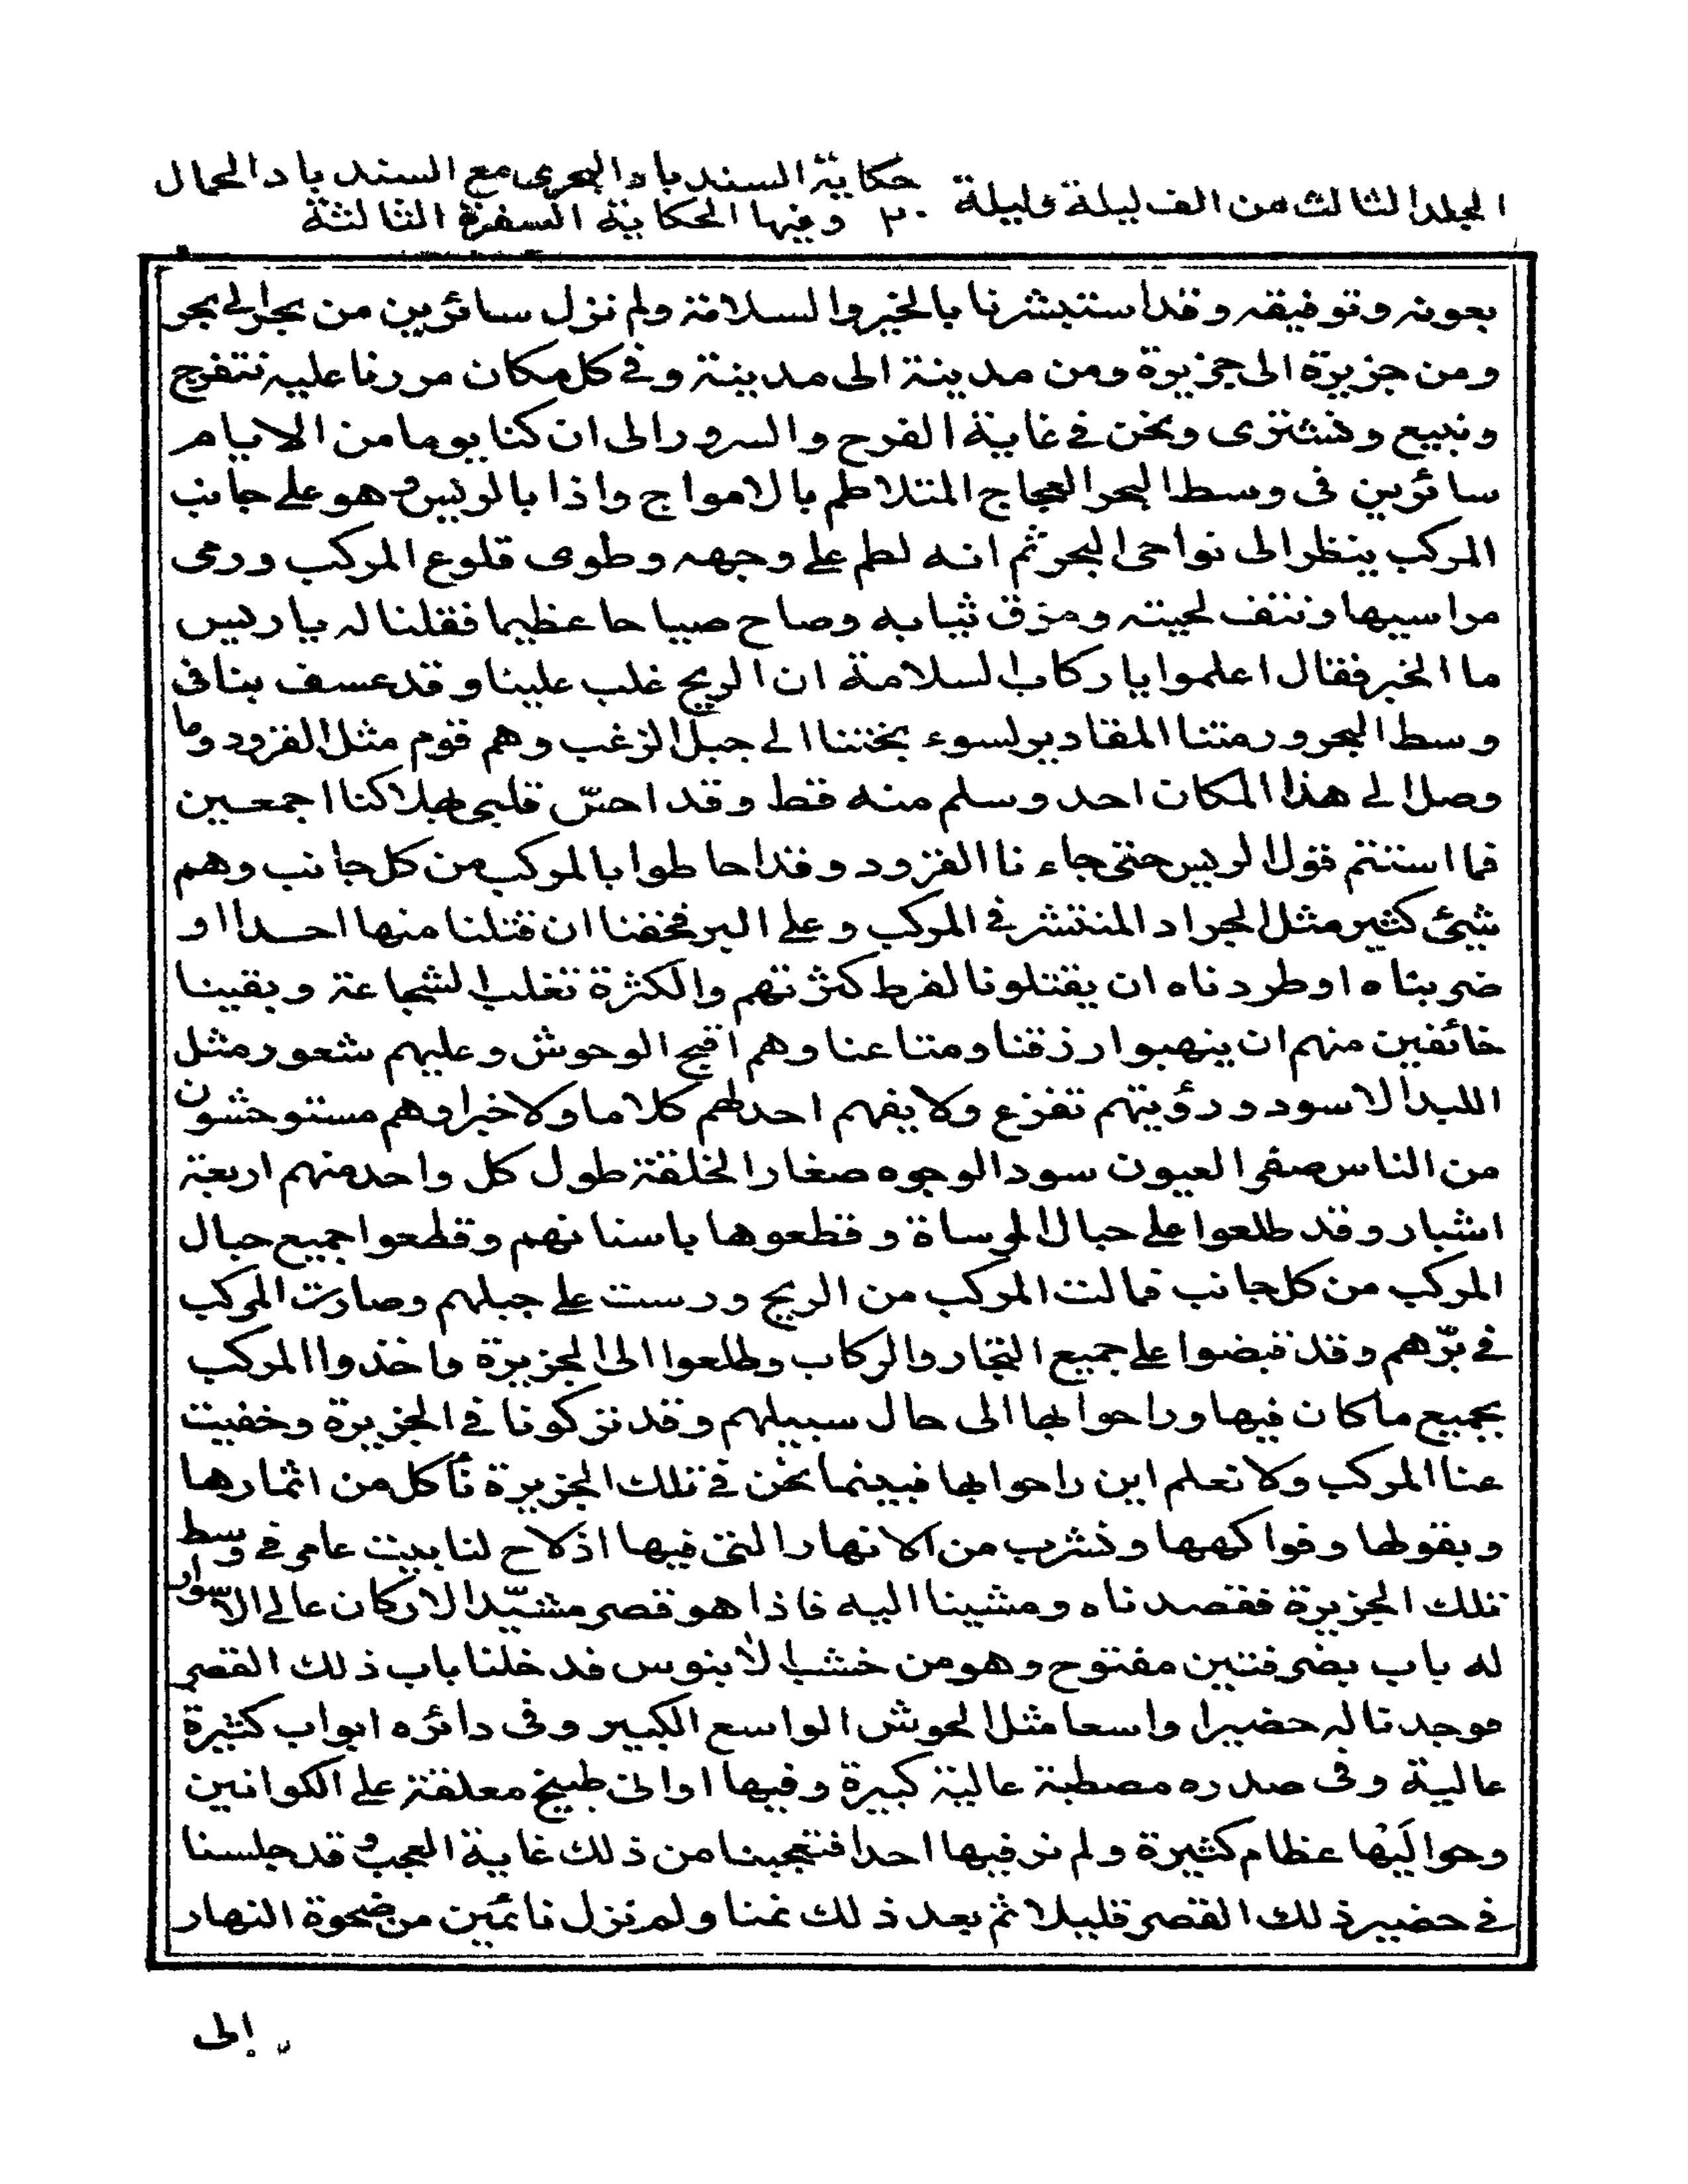 المجلد الثالث من الف ليلة وليلة ٣٠ حكاية السندباد البحرى مع السندباد الحمال
وفيها الحكاية السفرة الثالثة
بعونه وتوفيقه وقد استبشرنا بالخير والسلامة ولم نزل سائرين من بحر الى بحر
ومن جزيرة الى جزيرة ومن مدينة الى مدينة وفى كل مكان مررنا عليه نتفرج
ونبيع ونشترى ونحن فى غاية الفرح والسرور الى ان كنا يوما من الايام
سائرين فى وسط البحر العجاج المتلاطم بالامواج واذا بالريس وهو على جانب
المركب ينظر الى نواحى البحر ثم انه لطم على وجهه وطوى قلوع المركب ورمى
مراسيها ونتف لحيته ومزق ثيابه وصاح صياحا عظيما فقلنا له يا ريس
ما الخبر فقال اعلموا يا ركاب السلامة ان الريح غلب علينا وقد عسف بنا فى
وسط البحر ورمتنا المقادير لسوء بختنا الى جبل الزغب وهم قوم مثل القرود وما
وصل الى هذا المكان احد وسلم منه قط وقد احسّ قلبى بهلاكنا اجمعين
فما استتم قول الريس حتى جاءنا القرود وقد احاطوا بالمركب من كل جانب وهم
شيئ كثير مثل الجراد المنتشر فى المركب وعلى البر فخفنا ان قتلنا منها احدا او
ضربناه او طردناه ان يقتلونا لفرط كثرتهم والكثرة تغلب الشجاعة وبقينا
خائفين منهم ان ينهبوا رزقنا ومتاعنا وهم اقبح الوحوش وعليهم شعور مثل
اللبد الاسود ورؤيتهم تفزع ولا يفهم احد لهم كلاما ولا خبرا وهم مستوحشون
من الناس صفر العيون سود الوجوه صغار الخلقة طول كل واحد منهم اربعة
اشبار وقد طلعوا على حبال المرساة وقطعوها باسنانهم وقطعوا جميع حبال
المركب من كل جانب فمالت المركب من الريح ورست على جبلهم وصارت المركب
فى برّهم وقد قبضوا على جميع التجار والركاب وطلعوا الى الجزيرة واخذوا المركب
بجميع ما كان فيها وراحوا بها الى حال سبيلهم وقد تركونا فى الجزيرة وخفيت
عنا المركب ولا نعلم اين راحوا بها فبينما نحن فى تلك الجزيرة نأكل من اثمارها
وبقولها وفواكهها ونشرب من الانهار التى فيها اذ لاح لنا بيت عامر فى وسط
تلك الجزيرة فقصدناه ومشينا اليه فاذا هو قصر مشيّد الاركان عالى الاسوار
له باب بضرفتين مفتوح وهو من خشب الابنوس فدخلنا باب ذلك القصر
فوجدنا له حضيرا واسعا مثل الحوش الواسع الكبير وفى دائره ابواب كثيرة
عالية وفى صدره مصطبة عالية كبيرة وفيها اوانى طبيخ معلقة على الكوانين
وحواليْها عظام كثيرة ولم نر فيها احدا فتعجبنا من ذلك غاية العجب وقد جلسنا
فى حضير ذلك القصر قليلا ثم بعد ذلك نمنا ولم نزل نائمين من ضحوة النهار
إلى